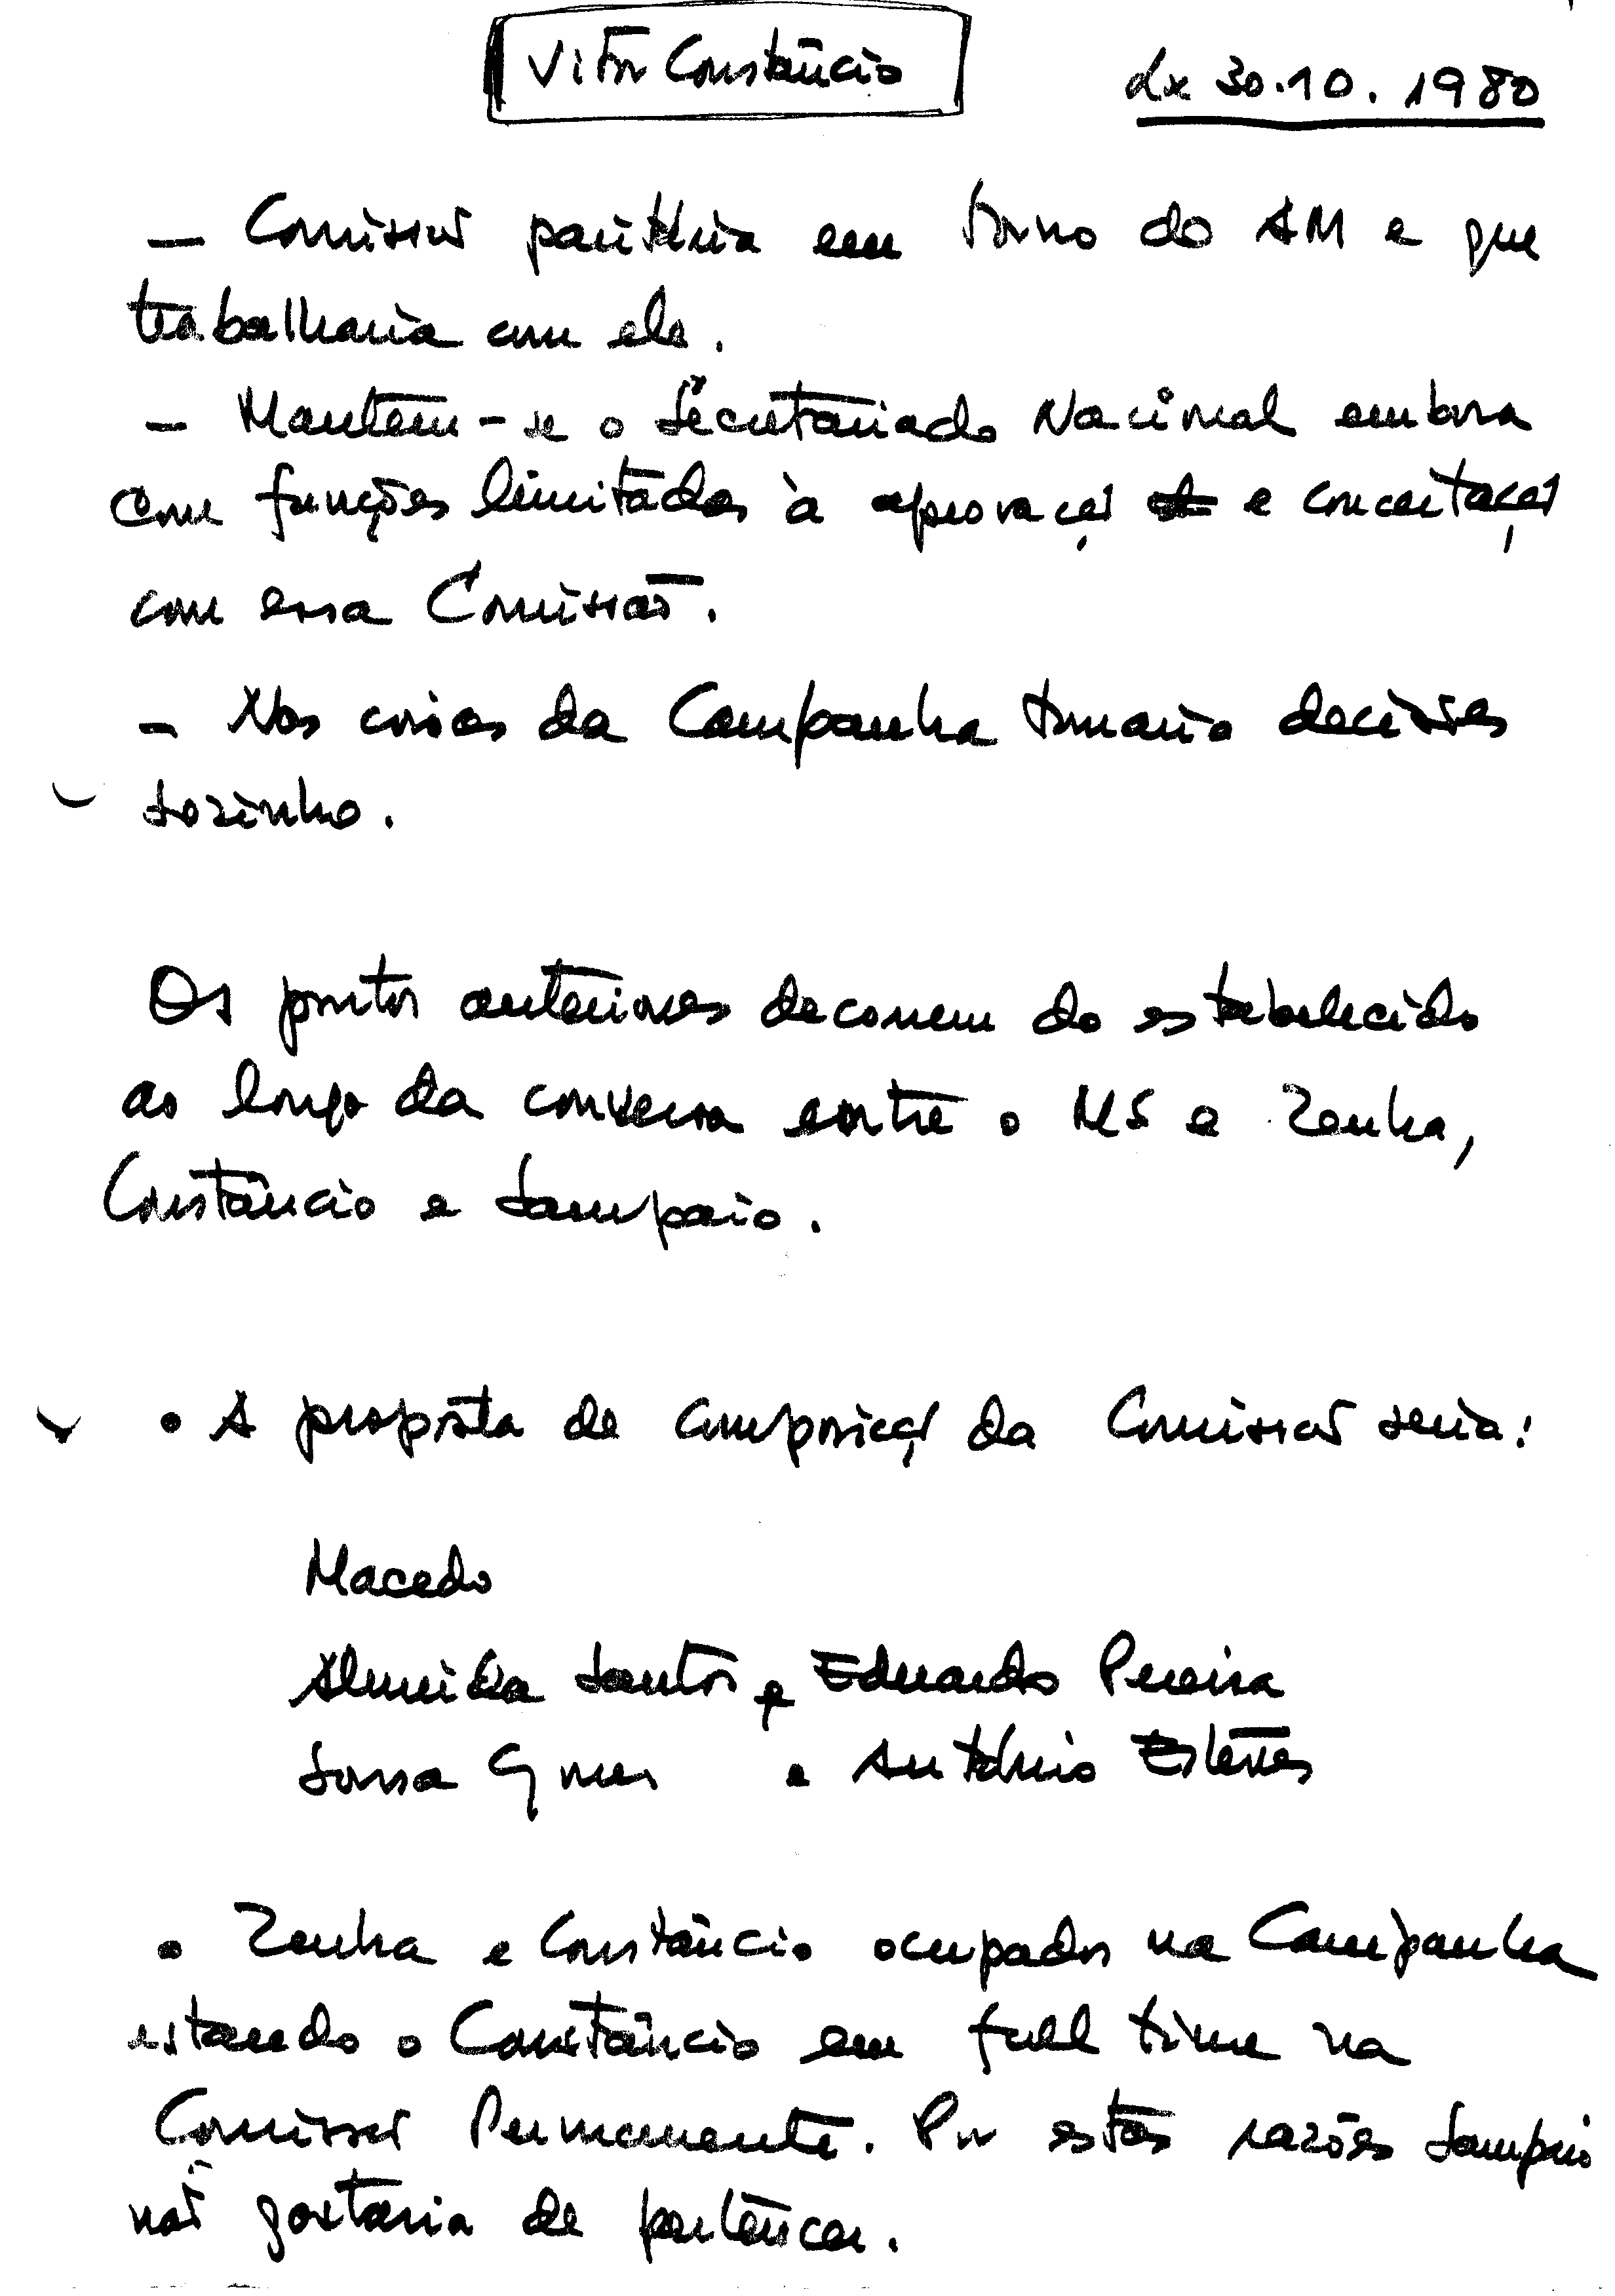 Vitor Constâncio
Lx 30.10.1980
- Comissão paritária em torno do AM e que
trabalharia com ele.
- Mantém-se o Secretariado Nacional embora
com funções limitadas à aprovação e concertação
com essa Comissão.
- Nas coisas da Campanha tomaria decisões
sozinho.
Os pontos anteriores decorrem do estabelecido
ao longo da conversa entre o MS e Zenha,
Constâncio e Sampaio.
• A proposta de composição da Comissão seria:
Macedo
Almeida Santos e Eduardo Pereira
Sousa Gomes e António Esteves
• Zenha e Constâncio ocupados na Campanha
estando o Constâncio em full time na
Comissão Permanente. Por estas razões Sampaio
não gostaria de pertencer.